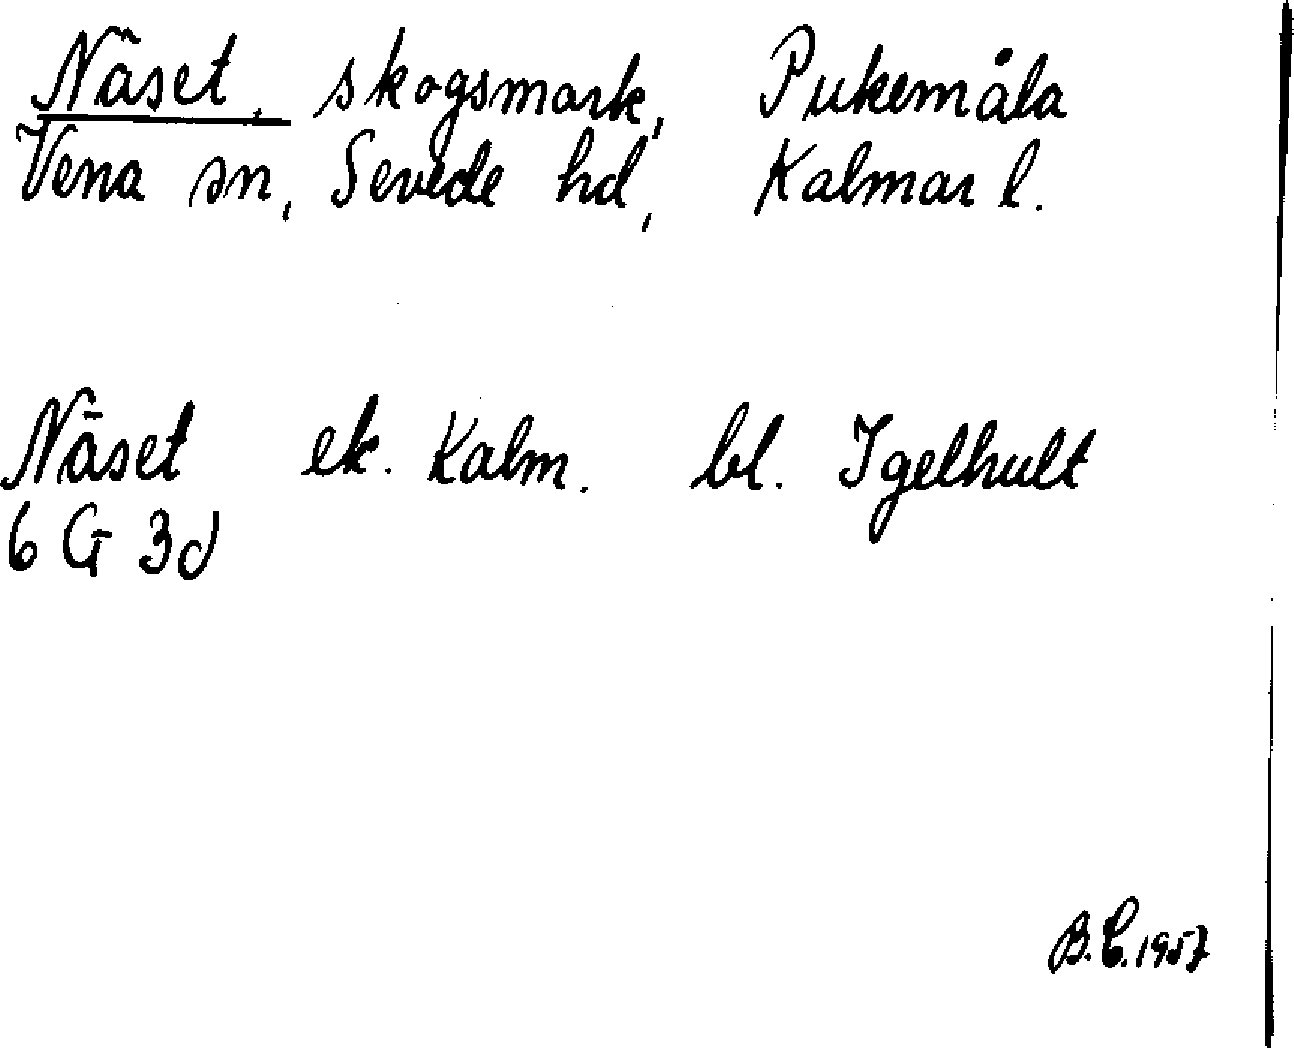 Näset, skogsmark, Pukemåla
Vena sn, Sevede hd, Kalmar l.
Näset ek. Kalm. bl. Igelhult
6 G 3d
B.C. 1957